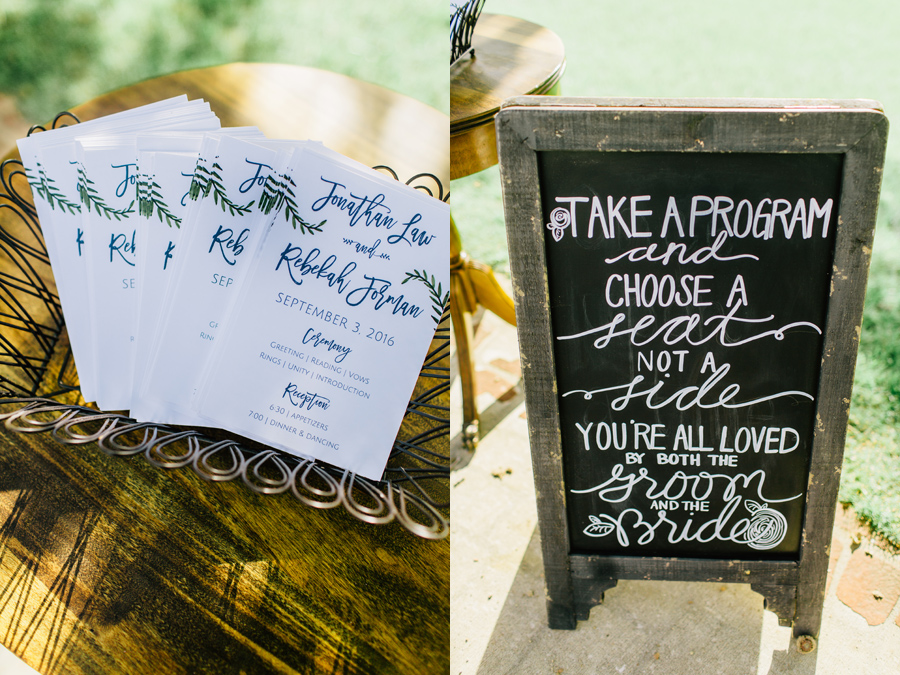 Jonathan Law
and
Rebekah Forman
SEPTEMBER 3, 2016
Ceremony
GREETING | READING | VOWS
RINGS | UNITY | INTRODUCTION
Reception
6:30 | APPETIZERS
7:00 | DINNER & DANCING
TAKE A PROGRAM
and
CHOOSE A
seat
NOT A
side
YOU'RE ALL LOVED
BY BOTH THE
groom
AND THE
Bride